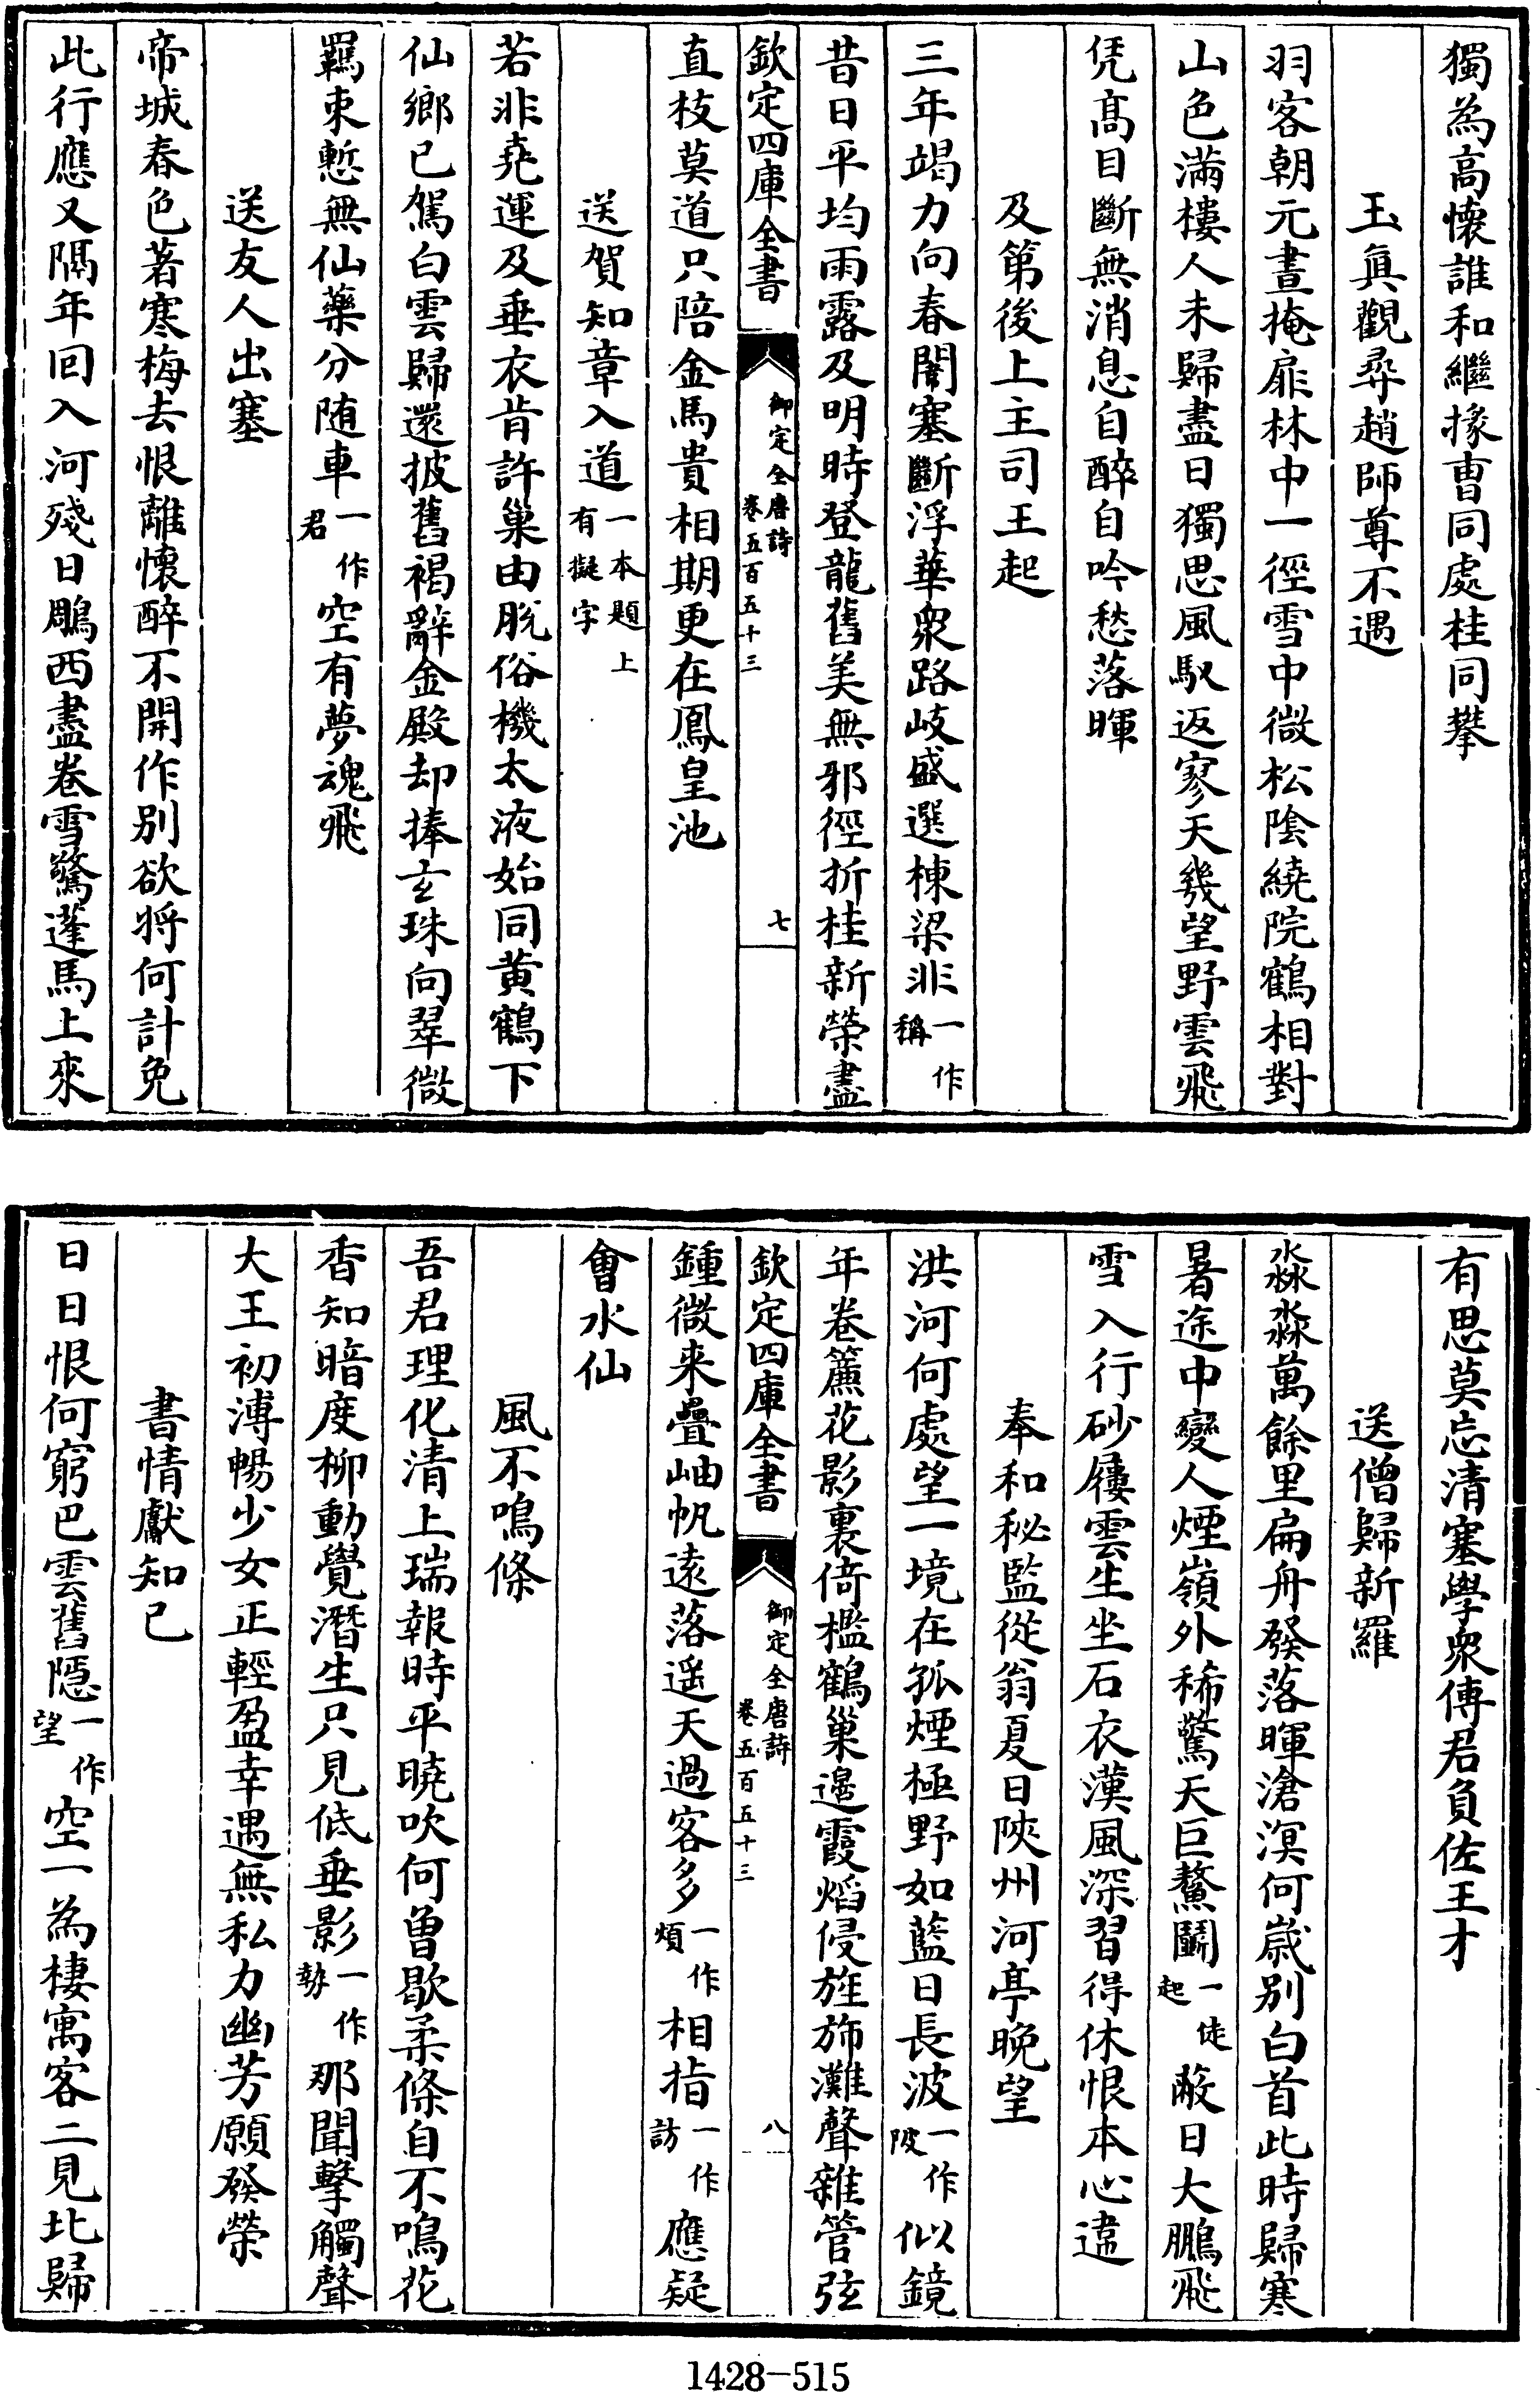 獨為高懷誰和繼掾曺同處桂同攀
玉真觀尋趙師尊不遇
羽客朝元晝掩扉林中一徑雪中微松陰繞院鶴相對
山色滿樓人未歸盡日獨思風馭返寥天幾望野雲飛
凭高目斷無消息自醉自吟愁落暉
及第後上主司王起
三年竭力向春闈塞斷浮華衆路岐盛選棟梁非一作稱
昔日平均雨露及明時登龍舊美無邪徑折桂新榮盡
欽定四庫全書 御定全唐詩卷五百五十三 七
直枝莫道只陪金馬貴相期更在鳳皇池
送賀知章入道一本題上有擬字
若非堯運及垂衣肯許巢由脫俗機太液始同黄鶴下
仙鄉已駕白雲歸還披舊褐辭金殿却捧玄珠向翠微
羈束慙無仙藥分随車一作君空有夢魂飛
送友人出塞
帝城春色著寒梅去恨離懷醉不開作別欲將何計免
此行應又隔年回入河殘日鵰西盡卷雪驚蓬馬上來
有思莫忘清塞學衆傳君負佐王才
送僧歸新羅
淼淼萬餘里扁舟發落暉滄溟何歲别白首此時歸寒
暑途中變人煙嶺外稀驚天巨鰲鬬一徒起蔽日大鵬飛
雪入行砂屨雲生坐石衣漢風深習得休恨本心違
奉和秘監從翁夏日陜州河亭晚望
洪河何處望一境在孤煙極野如藍日長波一作陂似鏡
年卷簾花影裏倚檻鶴巢邊霞焰侵旌斾灘聲雜管弦
欽定四庫全書 御定全唐詩卷五百五十三 八
鍾微来疊岫帆遠落遥天過客多一作煩相指一作訪應疑
會水仙
風不鳴條
吾君理化清上瑞報時平曉吹何曽歇柔條自不鳴花
香知暗度柳動覺潛生只見低垂影一作勢那聞擊觸聲
大王初溥暢少女正輕盈幸遇無私力幽芳願發榮
書情獻知己
日日恨何窮巴雲舊隱一作望空一為棲寓客二見北歸
1428-515